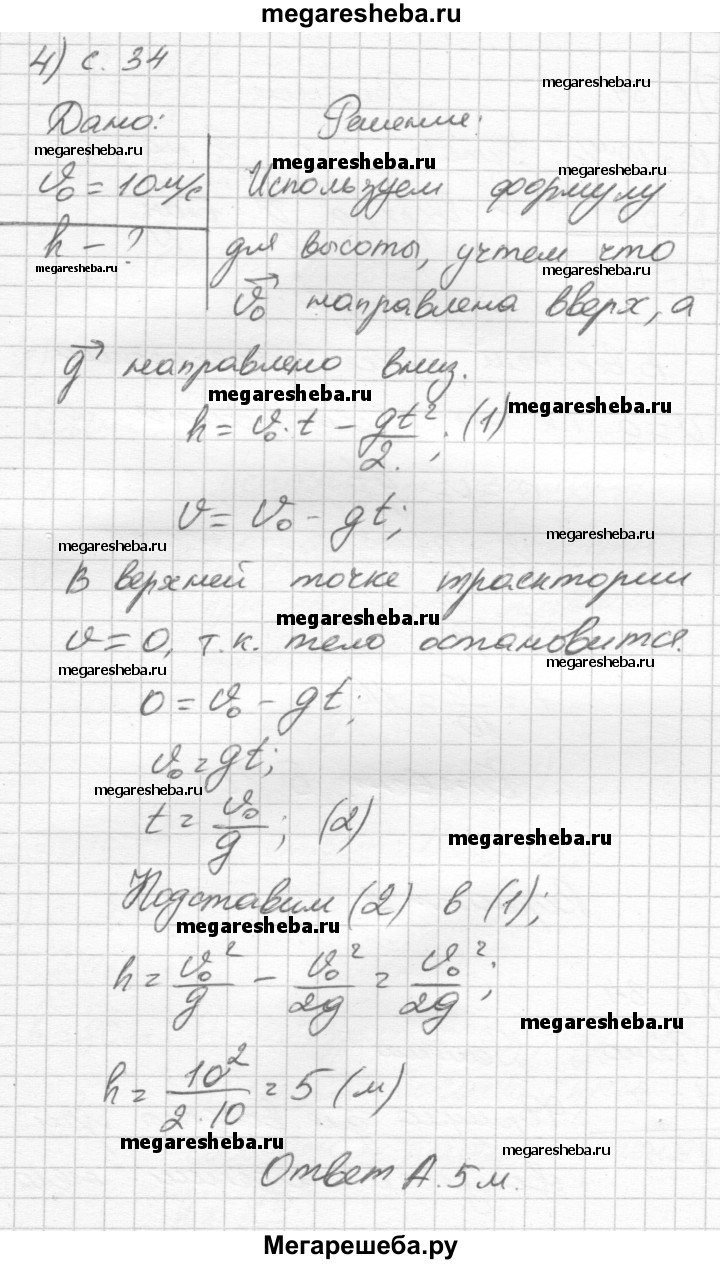 megaresheba.ru
4) с. 34
megaresheba.ru
Дано: Решение:
megaresheba.ru
megaresheba.ru
megaresheba.ru
v₀ = 10 м/с Используем формулу
h – ? для высоты, учтем что
megaresheba.ru
megaresheba.ru
v₀ направлена вверх, а
g направлено вниз.
megaresheba.ru
megaresheba.ru
h = v₀·t – gt²/2; (1)
v = v₀ – gt;
megaresheba.ru
megaresheba.ru
В верхней точке траектории
megaresheba.ru
v = 0, т.к. тело остановится.
megaresheba.ru
megaresheba.ru
0 = v₀ – gt;
v₀ = gt;
megaresheba.ru
t = v₀/g; (2)
megaresheba.ru
Подставим (2) в (1);
megaresheba.ru
h = v₀²/g – v₀²/2g = v₀²/2g;
megaresheba.ru
h = 10²/2·10 = 5 (м)
megaresheba.ru
megaresheba.ru
Ответ А. 5 м.
Мегарешеба.ру